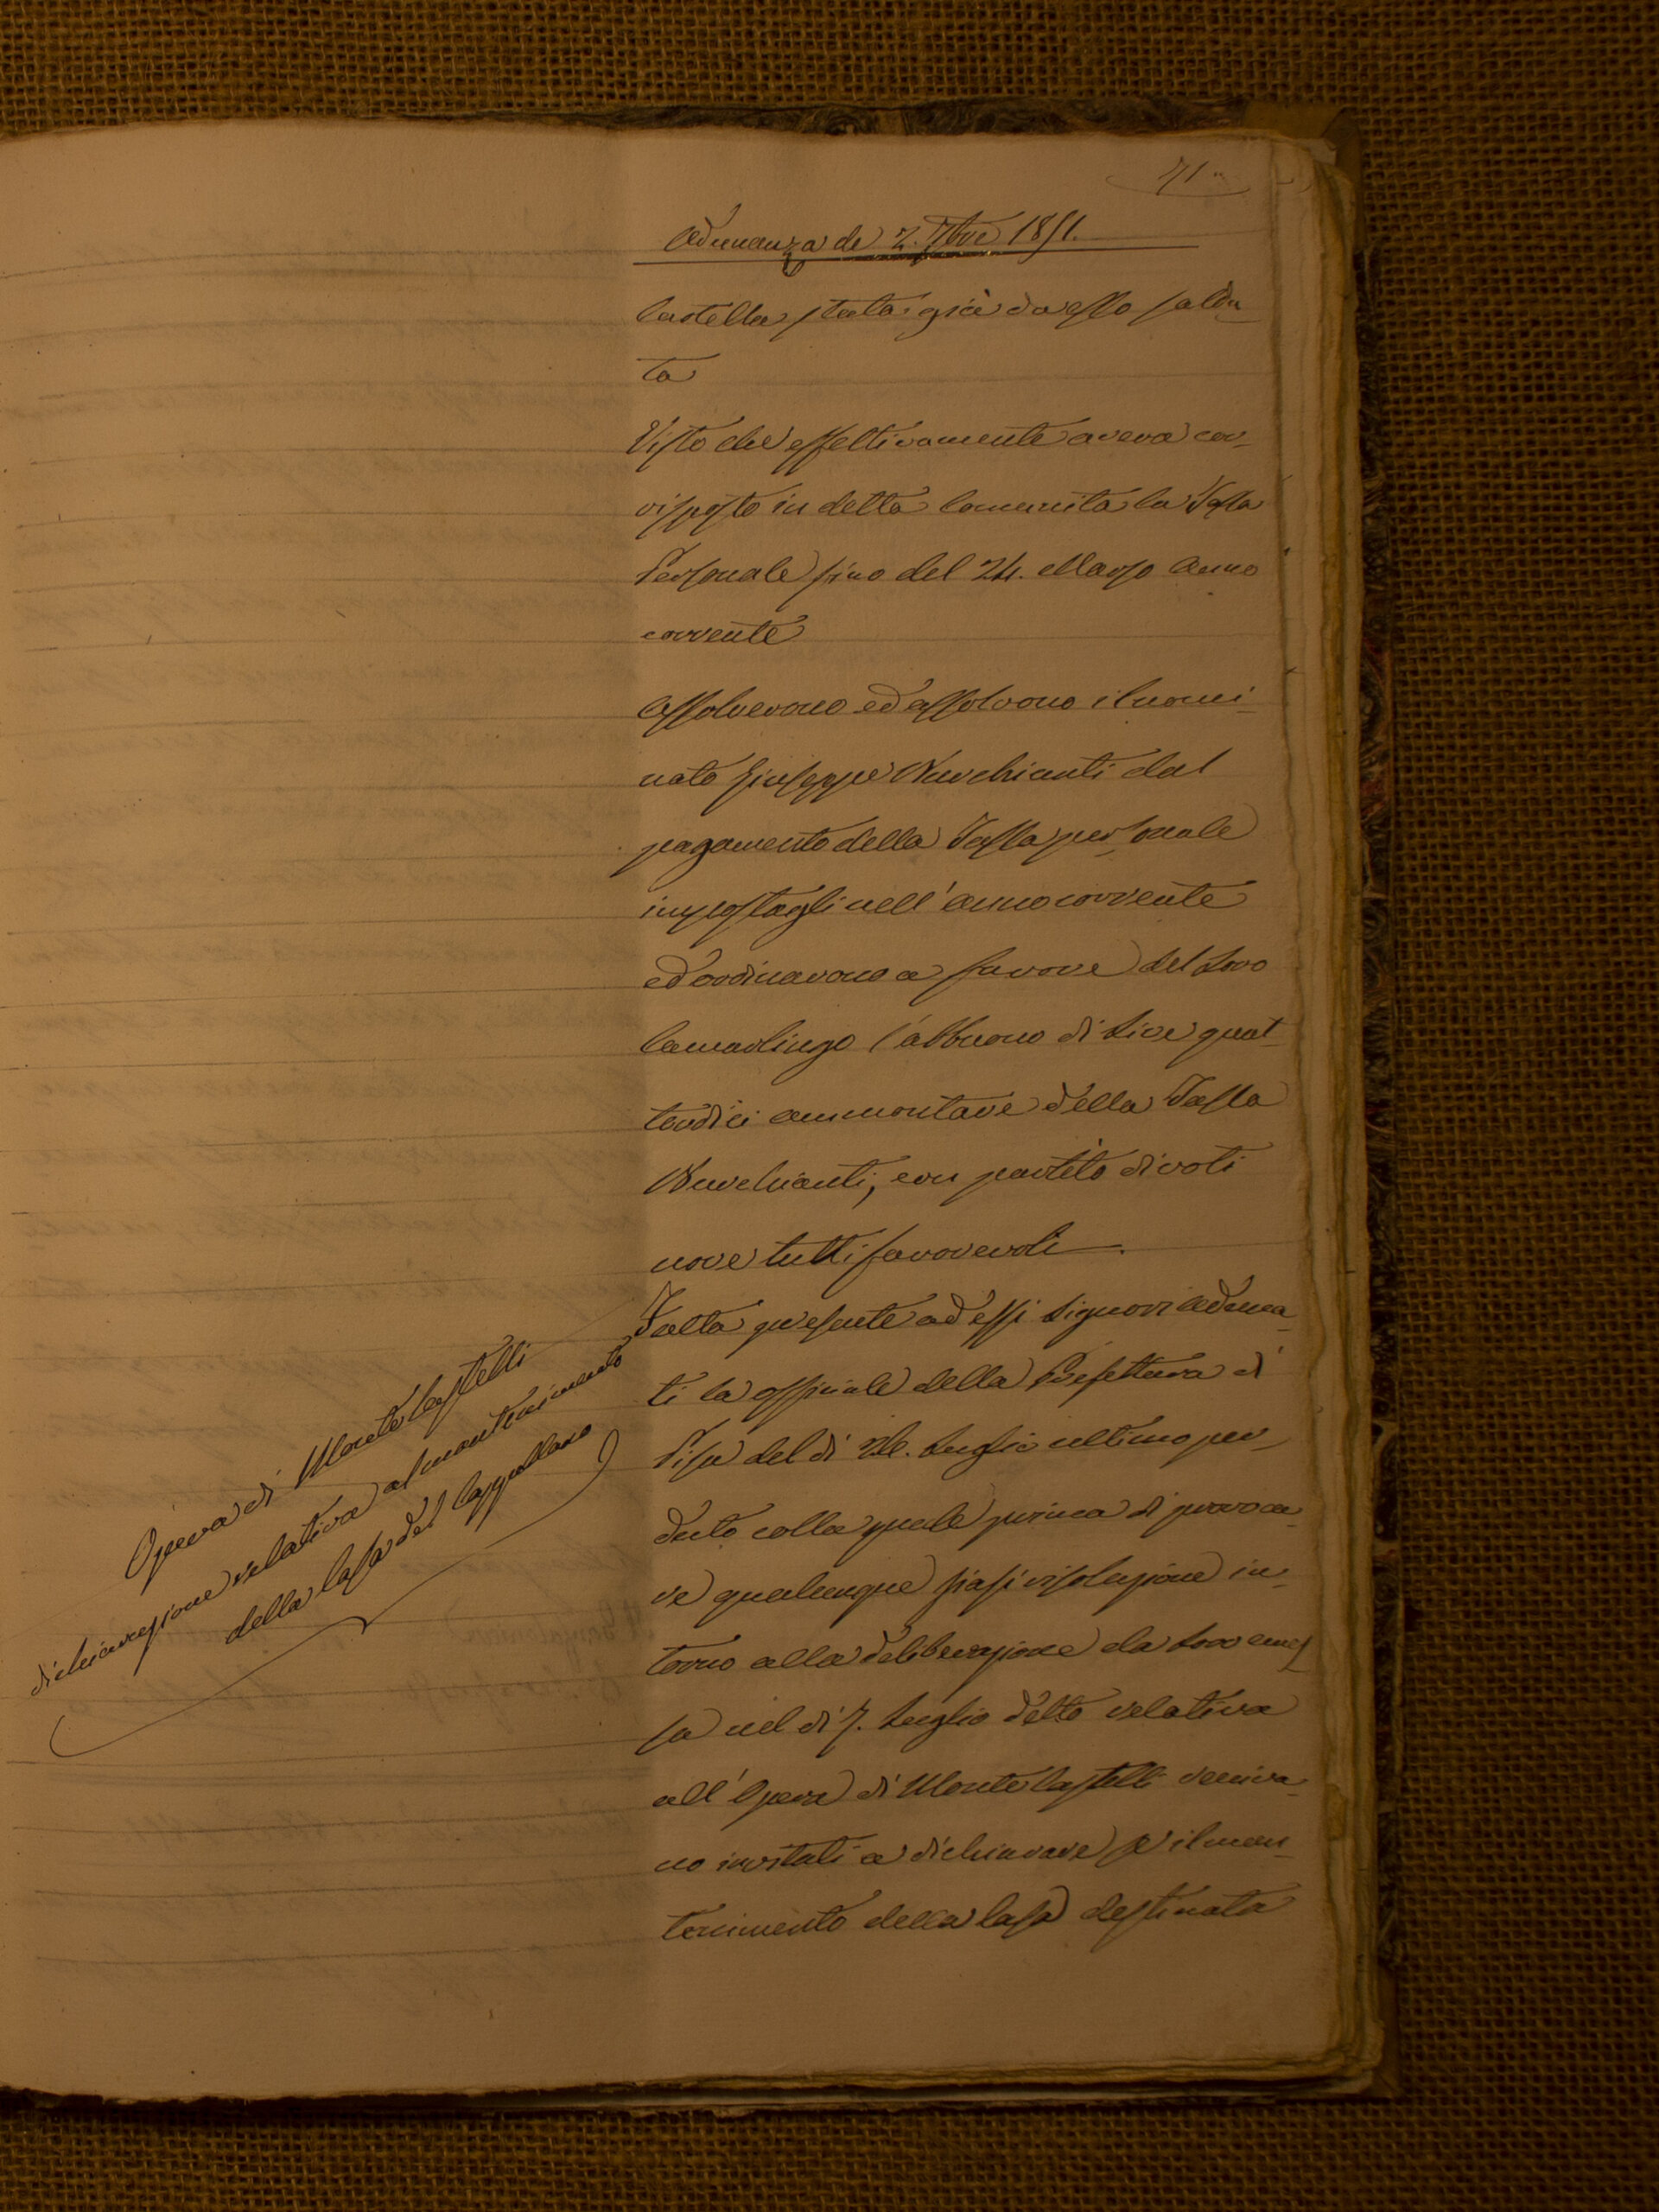 71
Adunanza de 2. 7bre 1851.
Castella stata già da esso salda
ta
Visto che effettivamente aveva cor-
risposto in detta Comunità la Tassa
Personale fino del 24. Marzo Anno
corrente
Assolverono ed assolvono il nomi-
nato Giuseppe Nucchianti dal
pagamento della Tassa personale
impostagli nell'anno corrente
ed ordinarono a favore del Loro
Camarlingo l'abbuono di Lire quat-
tordici ammontare della Tassa
Nucchianti, con partito di voti
nove tutti favorevoli.
Opera di Monte Castelli
dichiarazione relativa al mantenimento
della Casa del Cappellano
Fatta presente ad essi Signori Aduna-
ti la officiale della Prefettura di
Pisa del di Luglio ultimo per-
duto colla quale prima di provoca-
re qualunque siasi risoluzione in-
torno alla deliberazione da Loro emes-
sa nel di 7. Luglio detto relativa
all'Opera di Monte Castelli veniva-
no invitati a dichiarare se il man-
tenimento della Casa destinata